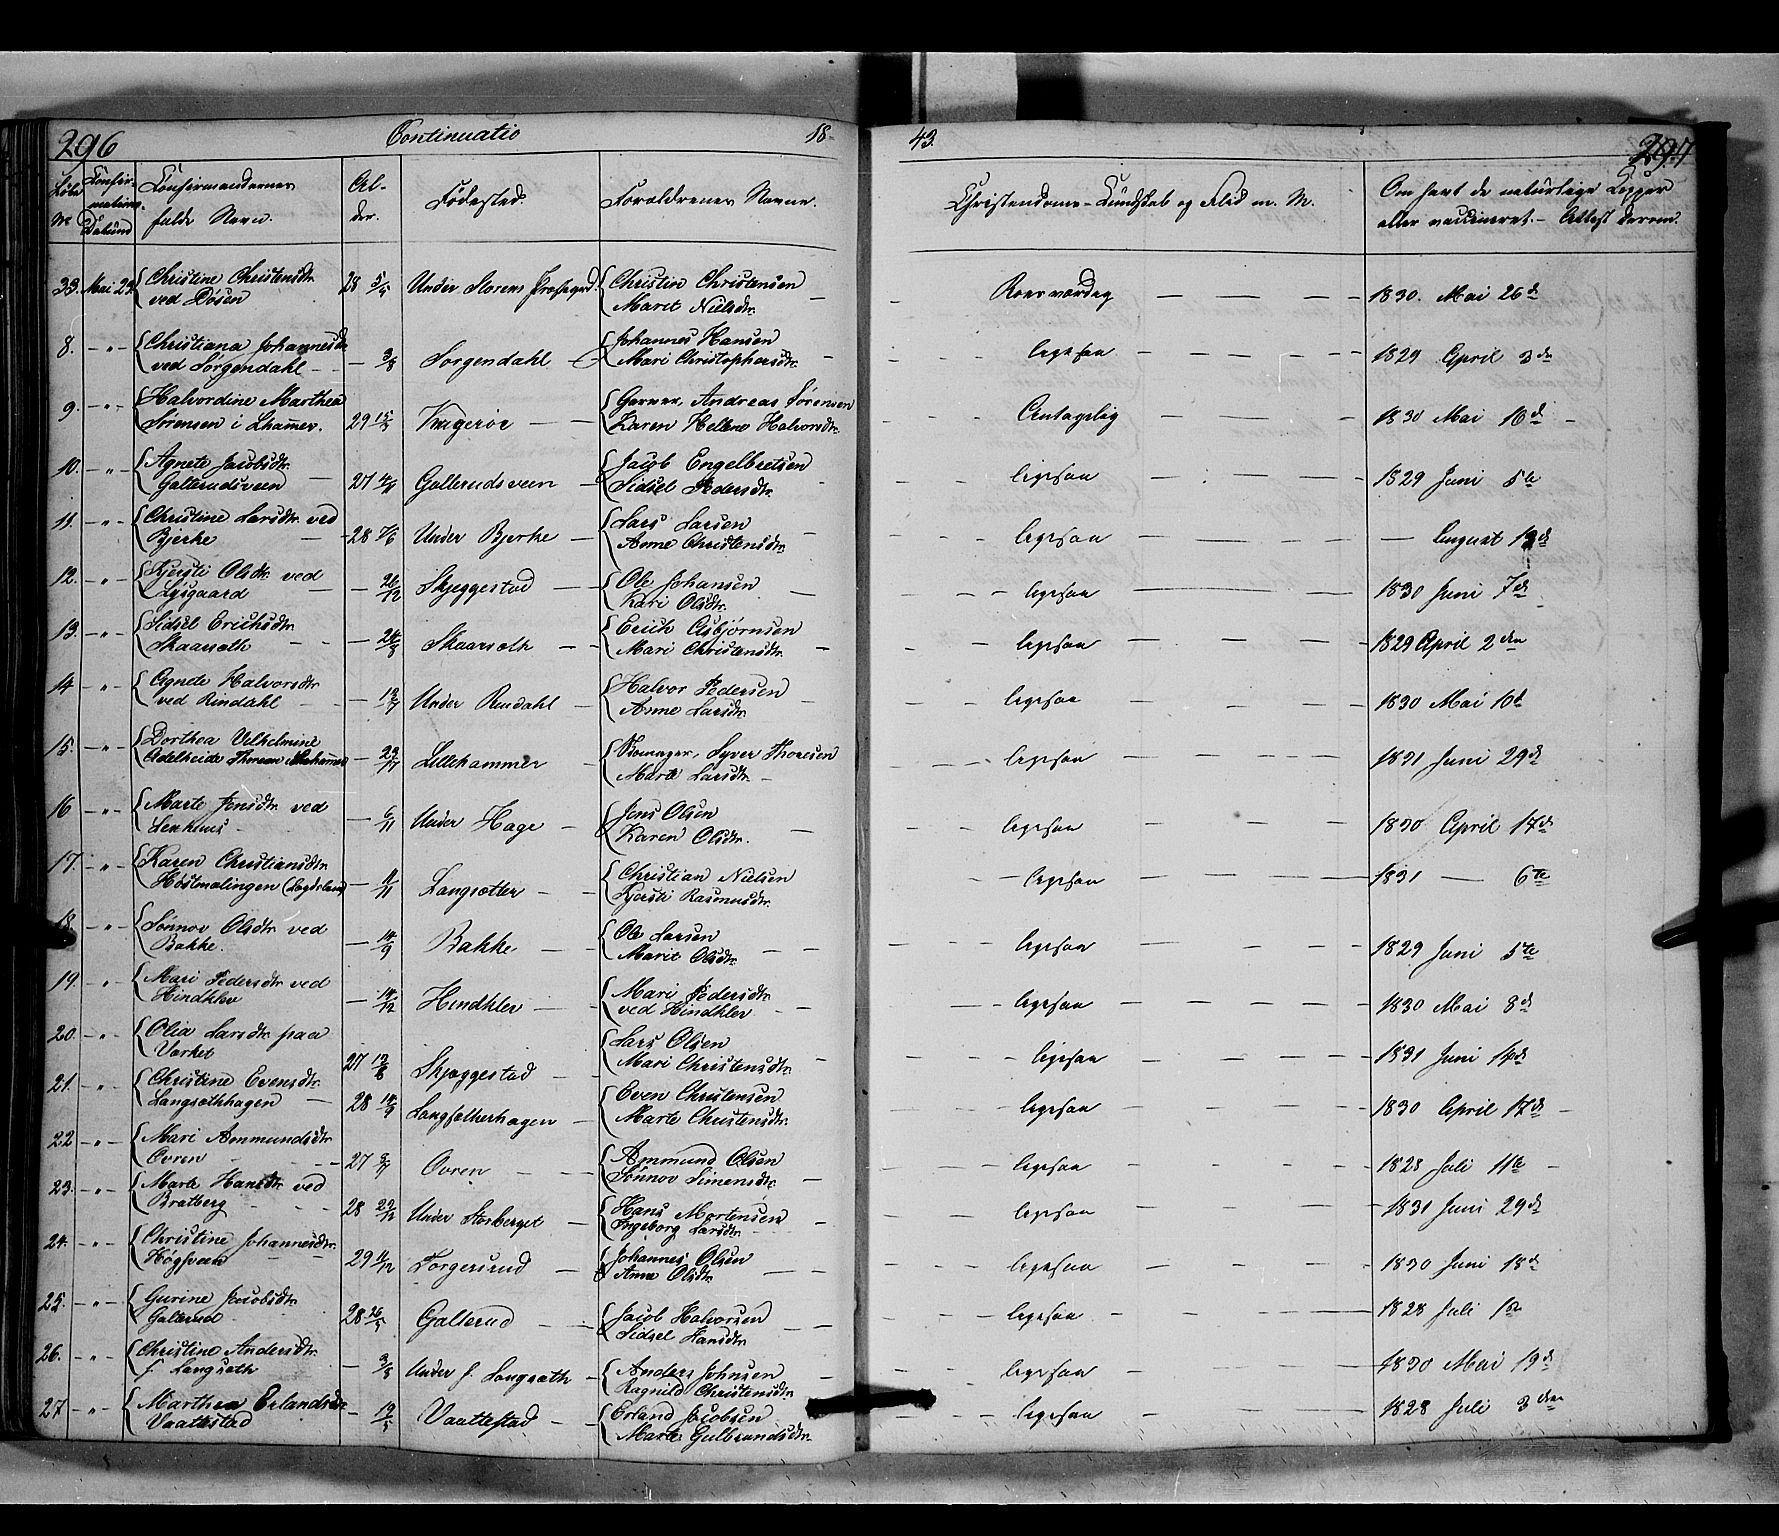 296 Continuatio 18-43. 297
Løbe No Confirmations Datum Confirmandernes fulde Navn. Alder. Fødested. Forældrenes Navne. Christendoms-Kundskab og Flid m. M. Om havt de naturlige Kopper eller vaccineret. - Attest derom.
33. Mai 29 Christine Christensdtr. ved Døsen 28 Under Præstegrd. Christin Christensen Marit Nielsdtr. Roesværdig 1830. Mai 26d
8. — " — Christiana Johannesdtr ved Sorgendahl — 3/8 Sorgendahl Johannes Hansen Mari Christophersdtr. ligesaa 1829 April 3de
9. — " — Halvordine Marthea Sørensen i Lhamer. 29 Kragerøe Garver, Andreas Sørensen Karen Hellene Halvorsdtr. Antagelig 1830 Mai 10d
10. — " — Agnete Jacobsdtr. Galterudsveen 27 Galterudsveen Jacob Engelbretsen Sidsel Pedersdtr. ligesaa 1829 Juni 5te
11. — " — Christine Larsdtr. ved Bjerke 28 7/6 Under Bjerke Lars Larsen Anne Christensdtr. ligesaa — August 13d
12. — " — Kjersti Olsdtr. ved Lysgaard — 26/12 Skjeggestad Ole Johansen Kari Olsdtr. ligesaa 1830 Juni 7d
13. — " — Sidsel Erichsdtr. Skaarseth — Skaarseth Erich Asbjørnsen Mari Christensdtr. ligesaa 1829 April 2den
14 — " — Agnete Halvorsdtr ved Rindahl — Under Rindahl Halvor Pedersen Anne Larsdtr. ligesaa 1830 Mai 10d
15. — " — Dorthea Vilhelmine Adelheide Thoresen — Lillehammer Syver Thoresen Marte Larsdtr. ligesaa 1831 Juni 29d
16 — " — Marte Jensdtr. ved — 6/11 Under Hage Jens Olsen Karen Olsdtr. ligesaa 1830 April 17d
17. — " — Karen Christiansdtr. Høstmælingen — 11/11 Langsetter Christian Nielsen Kjersti Rasmusdtr. ligesaa 1831 — 6te
18. — " — Sønnov Olsdtr. ved Bakke. — 14/9 Bakke Ole Larsen Marit Olsdtr. ligesaa 1829 Juni 5te
19. — " — Mari Pedersdtr. ved Hindklev — 14/12 Hindklev Mari Pedersdtr. ved Hindklev ligesaa 1830 Mai 8d
20. — " — Olia Larsdtr. paaVærket 27 Skjeggestad Lars Olsen Mari Christensdtr. ligesaa 1831 Juni 14d
21. — " — Christine Evensdtr. Langsethhagen 28 Langsetherhagen Even Christensen Marte Christensdtr. ligesaa 1830 April 17d
22 — " — Mari Ammundsdtr. Ovren 27 Ovren Ammund Olsen Sønnov Simensdtr. ligesaa 1828 Juli 11te
23. — " — Marte Hansdtr. ved Bratberg 28 Under Storberget Hans Mortensen Ingeborg Larsdtr. ligesaa 1831 Juni 29d
24. — " — Christine Johannesdtr. Høgsveen 29 11/12 Torgersrud Johannes Olsen Anne Olsdtr. ligesaa 1830 Juni 18d
25. — " — Gurine Jacobsdtr. Galterud 28 Galterud Jacob Halvorsen Sidsel Hansdtr. ligesaa 1828 Juli 1te
26. — " — Christine Andersdtr. Langseth — Under Langseth Anders Johnsen Ragnild Christensdtr. ligesaa 1830 Mai 19d
27 — " — Marthea Erlandsdtr Vaattestad — Vaattestad Erland Jacobsen Marte Gulbrandsdtr. ligesaa 1828 Juli 3den